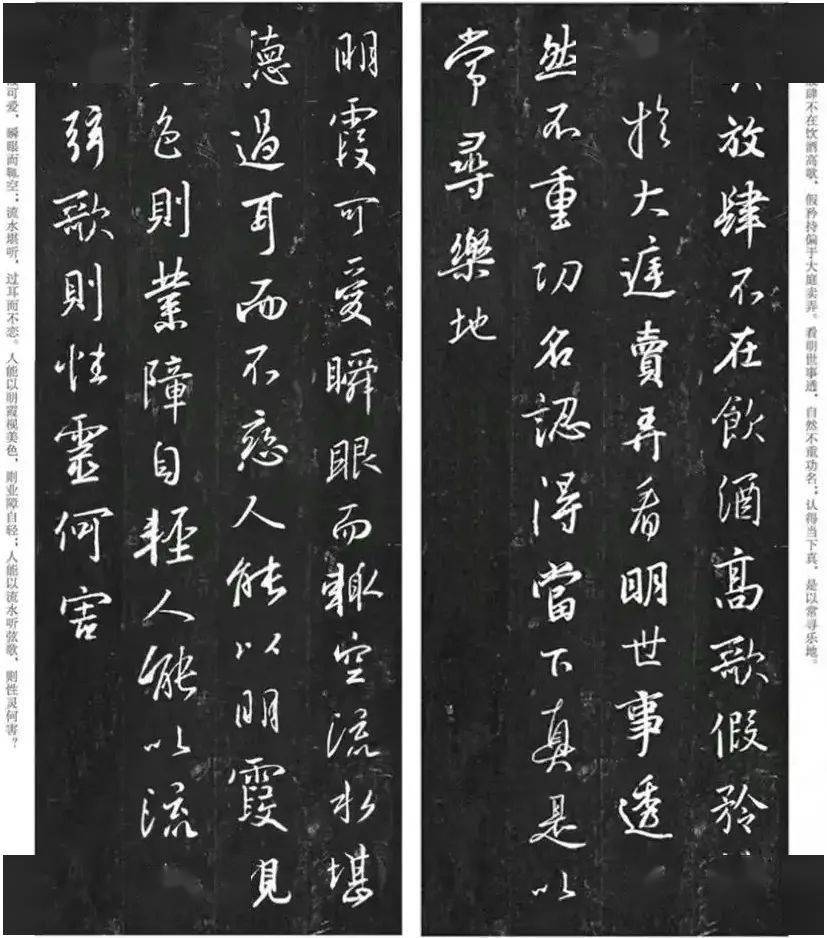 肆不在饮酒高歌，假矜持偏于大庭卖弄。看明世事透，自然不重功名；认得当下真，是以常寻乐地。
放肆不在飲酒高歌假矜
於大庭賣弄看明世事透
然不重功名認得當下真是以
常尋樂地
明霞可愛瞬眼而輒空流水堪
聽過耳而不戀人能以明霞
色則業障自輕人能以流
弦歌則性靈何害
可爱，瞬眼而辄空；流水堪听，过耳而不恋。人能以明霞视美色，则业障自轻；人能以流水听弦歌，则性灵何害？